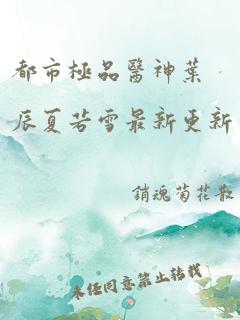 都市極品醫神葉
辰夏若雪最新更新
銷魂菊花散
未經同意禁止轉載